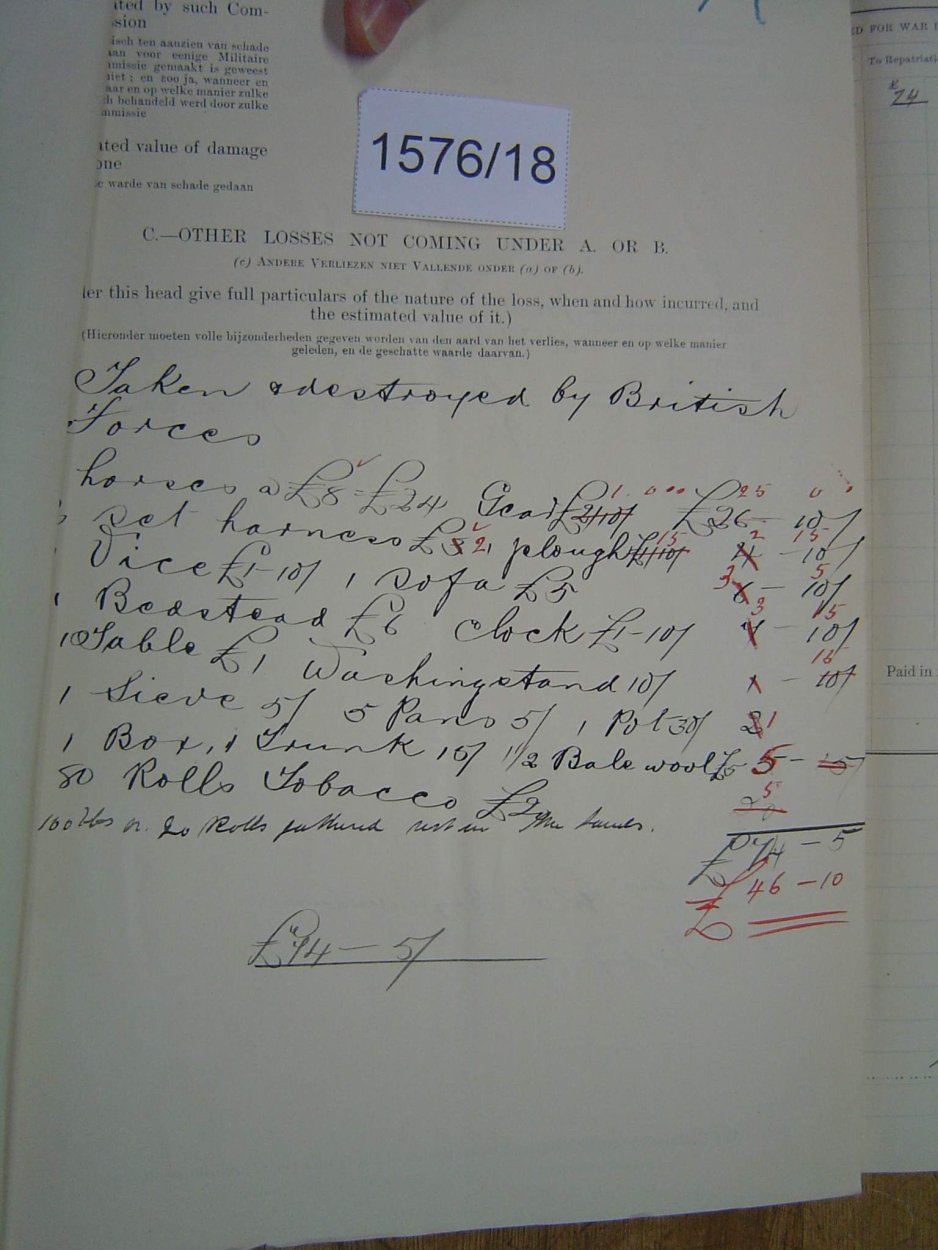 ited by such Com-
sion
isch ten aanzien van schade
aan voor eenige Militaire
missie gemaakt is geweest
niet ; en zoo ja, wanneer en
aar en op welke manier zulke
h behandeld werd door zulke
mmissie
ated value of damage
one
e warde van schade gedaan
1576/18
ED FOR WAR
To Repatriati
£
24
C.—OTHER LOSSES NOT COMING UNDER A. OR B.
(c) ANDERE VERLIEZEN NIET VALLENDE ONDER (a) OF (b).
der this head give full particulars of the nature of the loss, when and how incurred, and
the estimated value of it.)
(Hieronder moeten volle bijzonderheden gegeven worden van den aard van het verlies, wanneer en op welke manier
geleden, en de geschatte waarde daarvan.)
Taken & destroyed by British
Forces
horses @ £8 = £24 Gear £2/10/ 1 £26 - 10/ 25
set harness £ 2, plough £1/10/ 15 4 - 10/ 2 15
Vice £1-10/ 1 Sofa £5 6 - 10/ 3 5
1 Bedstead £6 Clock £1-10/ 7 - 10/ 3 15
1 Table £1 Washingstand 10/ 1 - 10/ 15
1 Sieve 5/ 5 Pans 5/ 1 Pot 30/ 2 1
1 Box, 1 Trunk 15/ 1/2 Bale wool £5 5 - 15/
80 Rolls Tobacco £20 20 5
100 lbs or 20 Rolls
£74 - 5
£46 - 10
£74 - 5/
Paid in